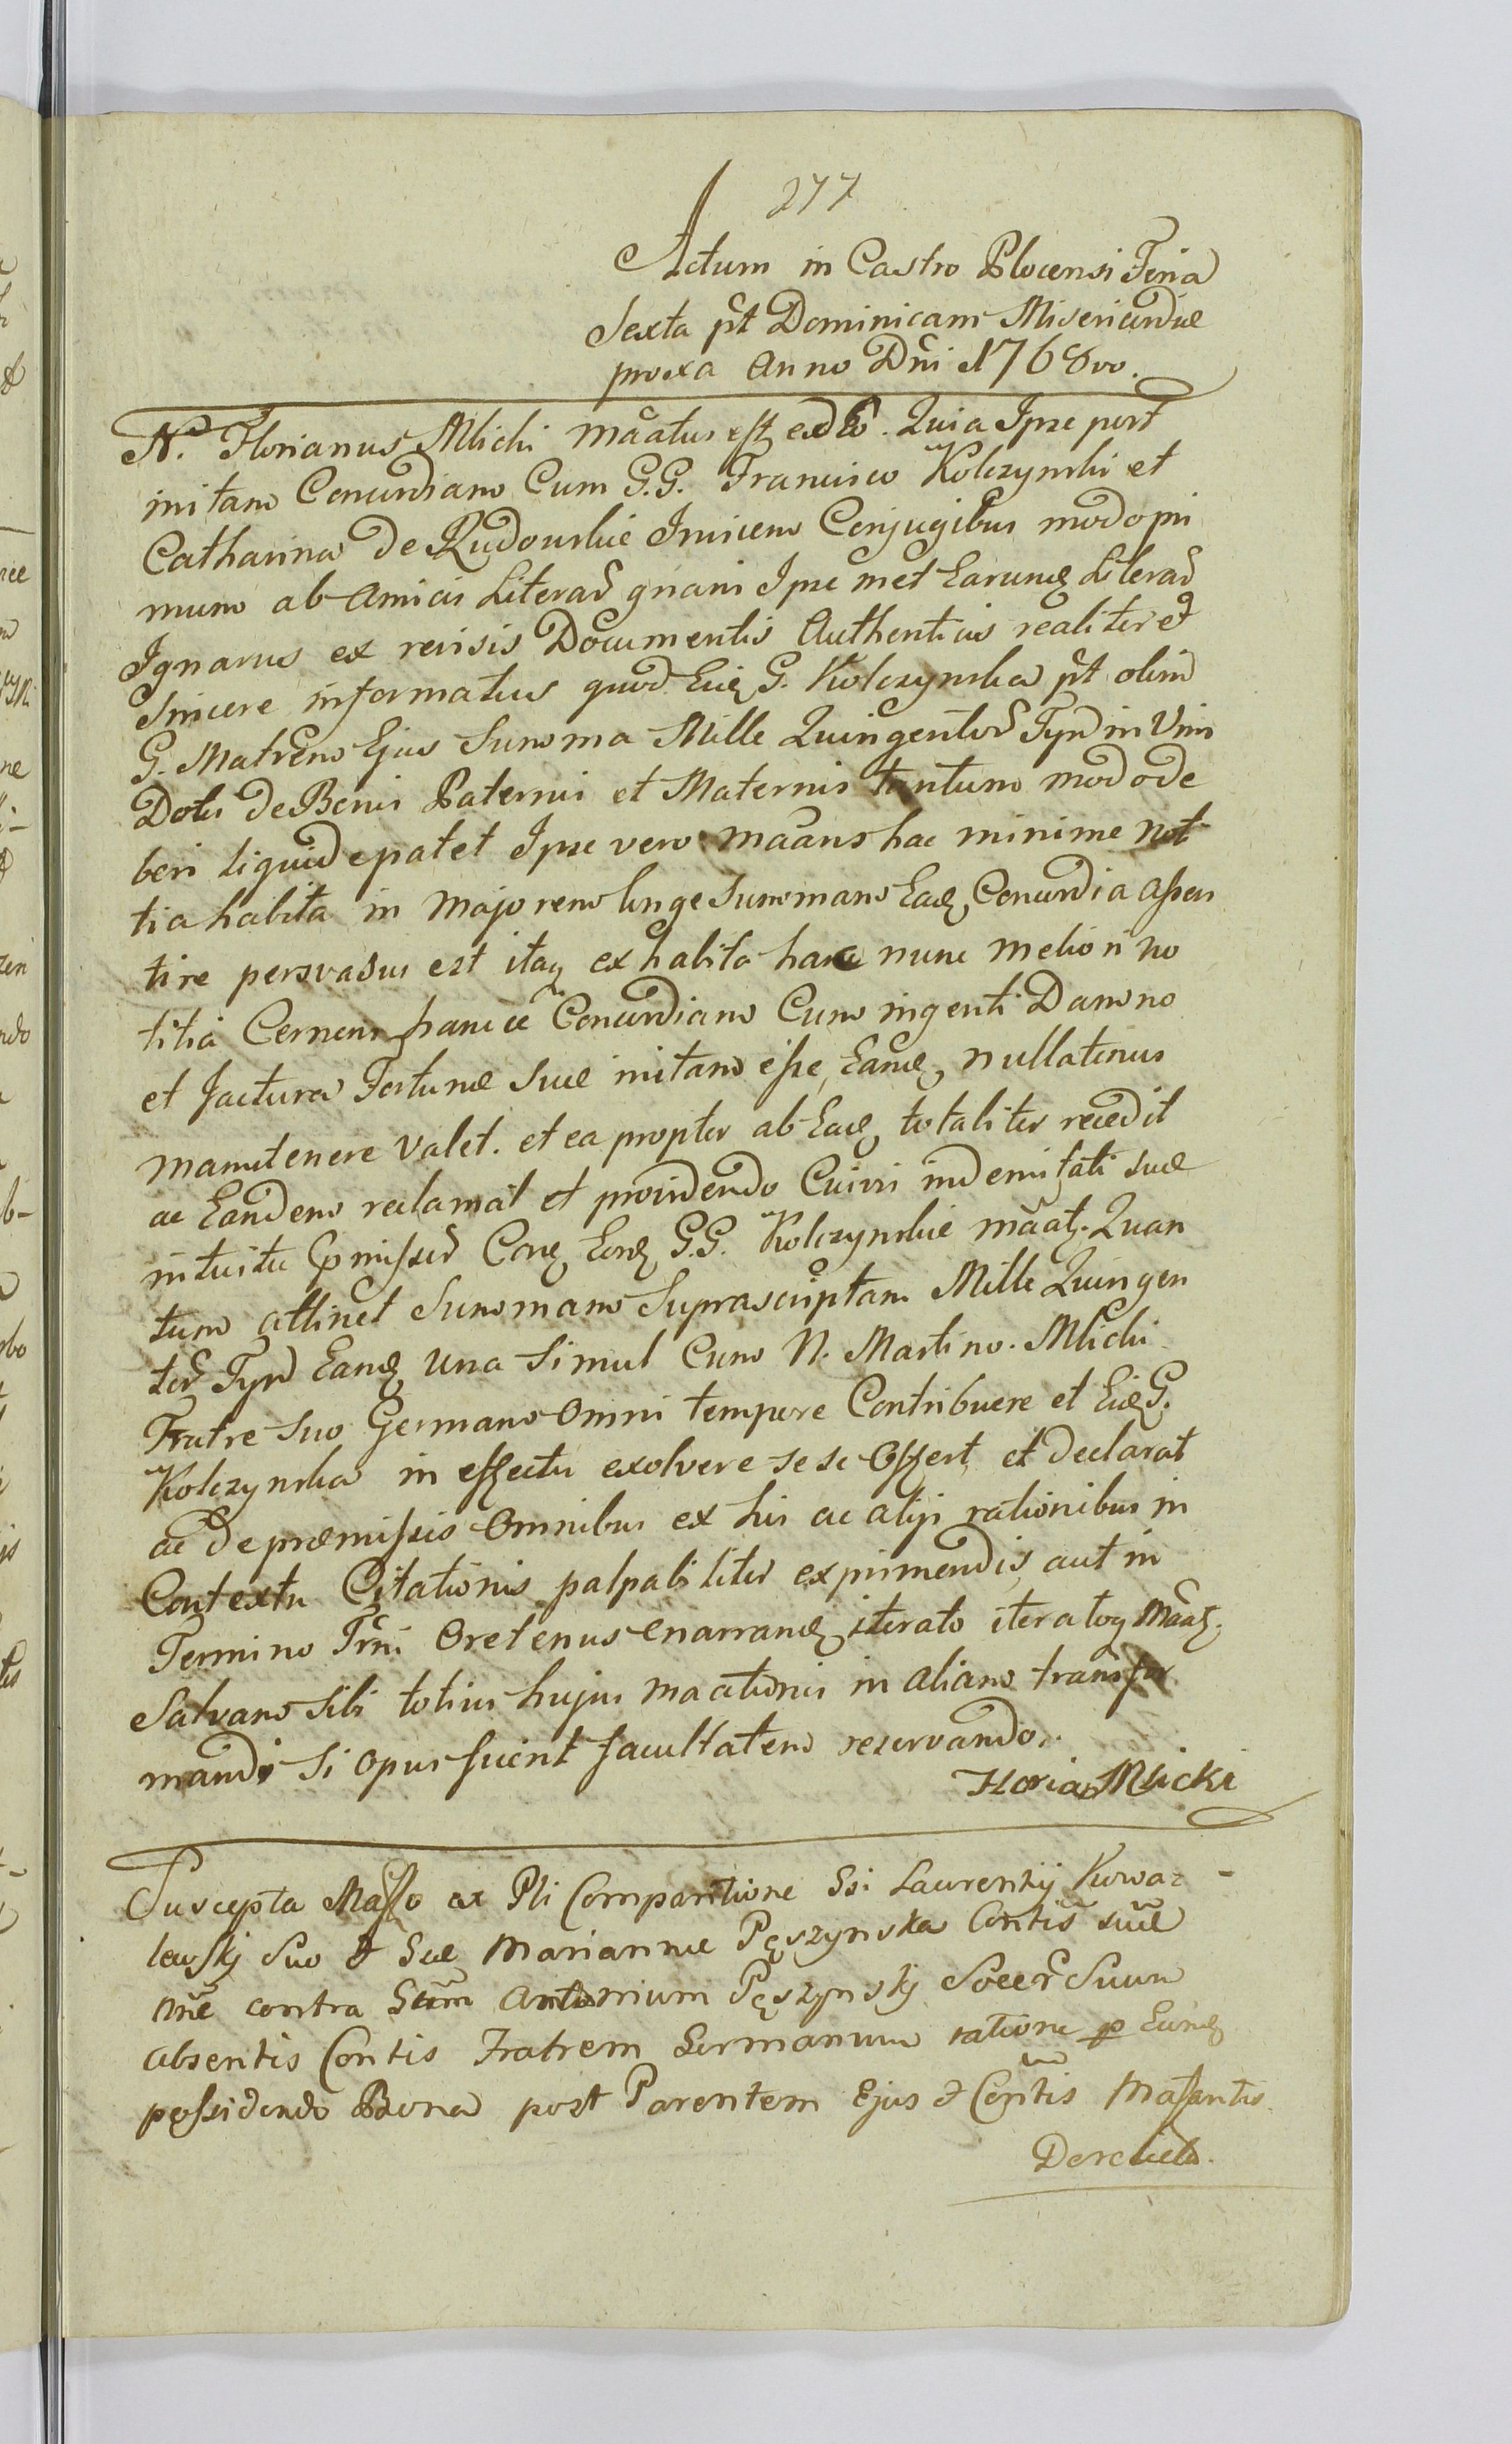 277
Actum in Castro Plocensi Feria
Sexta pt Dominicam Misericordiæ
proxa Anno Dni 1768vo.
N. Florianus Mlicki mãatus est ex eo. Quia Ipse post
initam Concordiam Cum G.G. Francisco Kolczynski et
Catharina De Rudowskie Invicem Conjugibus modo pri
mum ab Amicis Literar gnaris Ipse met Earumq Literar
Ignarus ex revisis Documentis Authenticis realiter et
Sincere informatus quod Eidq G. Kolczynska pt olim
G. Matrem Ejus Summa Mille Quingentor Tynf in Vim
Dotis De Bonis Paternis et Maternis tantum modo de
beri liquide patet Ipse vero mãans hac minime noti
tia habita in majorem longe Summam Eadq Concordia assen
tire persvasus est itaq ex habita hanc nunc meliori no
titia Cernens hancce Concordiam Cum ingenti Damno
et Jactura Fortunæ Suæ initam esse, Eandq nullatenus
manutenere valet. et ea propter ab Eadq totaliter recedit
ac Eandem reclamat et providendo Cuivi indemnitati suæ
intuitu præmissor Conq Eosdq G.G. Kolczynskie mãatq. Quan
tum attinet Summam Suprascriptam Mille Quingen
tor Tynf Eandq una simul Cum N. Martino Mlicki
Fratre Suo Germano Omni tempore Contribuere et Eidq G.
Kolczynska in effectu exolvere sese offert et declarat
ac De præmissis Omnibus ex his ac aliis rationibus in
Contextu Citationis palpabiliter exprimendis, aut in
Termino Trni Oretenus enarrandq iterato iteratoq mãatq.
Salvam Sibi totius hujus mãationis in aliam transfor
mandi si opus fuerit facultatem reservando.
Florian Mlicki
Suscepta Maño ex Pli Comparitione Ssi Laurentij Kowa-
lewskj Suo et Suæ Mariannæ Pęszynska Contis suæ
One contra Sum Antonium Pęszynskj Socer Suum
absentis Contis Fratrem Germanum ratione p Eundq
possidendo Bona post Parentem Ejus et Contis Mañantis
Derelicta.